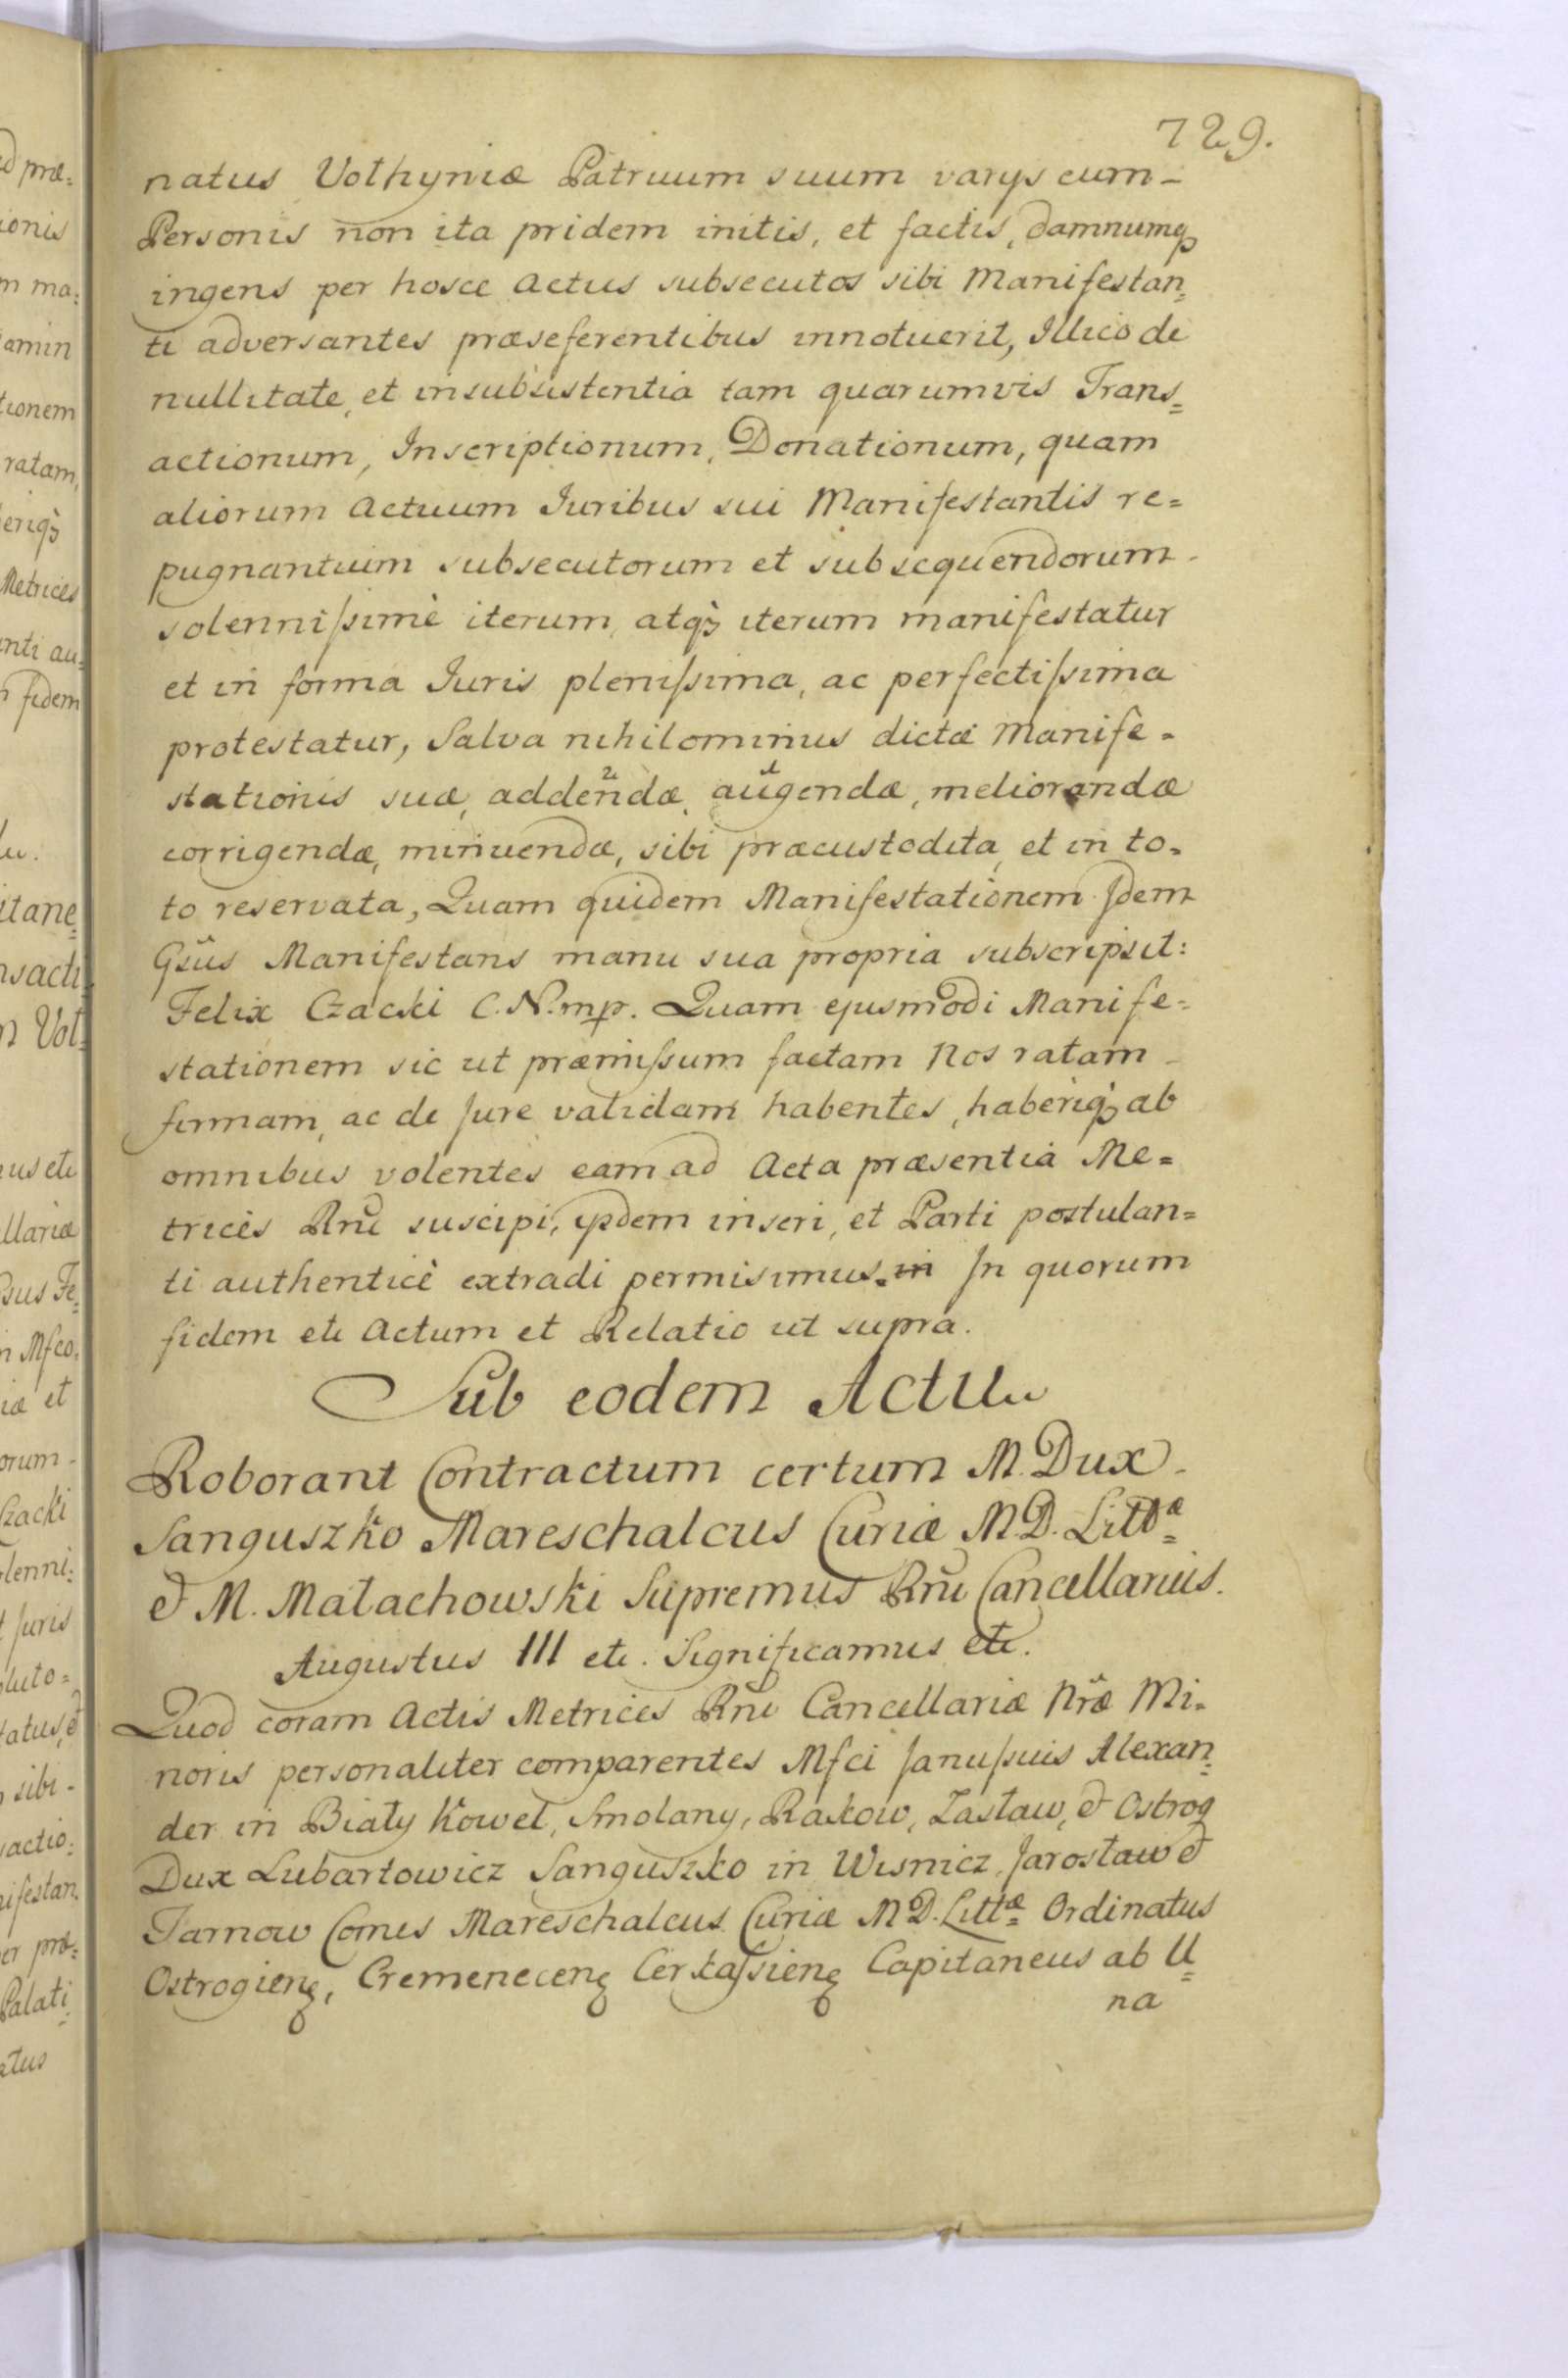 729.
natus Volhyniæ Patruum suum varys cum-
Personis non ita pridem initis, et factis, damnumqȝ
ingens per hosce Actus subsecutos sibi Manifestan=
ti adversantes præseferentibus innotuerit, Illico de
nullitate, et insubsistentia tam quarumvis Trans=
actionum, Inscriptionum, Donationum, quam
aliorum Actuum Juribus sui Manifestantis re=
pugnantium subsecutorum et subsequendorum-
solennissimè iterum, atqȝ iterum manifestatur
et in forma Juris plenissima, ac perfectissima
protestatur, Salva nihilominus dictæ Manife=
stationis suæ, addendæ, augendæ, meliorandæ
corrigendæ, minuendæ, sibi præcustodita, et in to=
to reservata, Quam quidem Manifestationem Idem
Gsus Manifestans manu sua propria subscripsit:
Felix Czacki C.N.mp. Quam ejusmodi Manife=
stationem sic ut præmissum factam Nos ratam-
firmam, ac de Jure validam habentes, haberiqȝ ab
omnibus volentes eam ad Acta præsentia Me=
trices Rni suscipi, ysdem inseri, et Parti postulan=
ti authenticè extradi permisimus. in In quorum
fidem etc Actum et Relatio ut supra.
Sub eodem Actu
Roborant Contractum certum M. Dux-
Sanguszko Mareschalcus Curiæ M.D. Littæ
& M. Małachowski Supremus Rni Cancellarius.
Augustus III etc. Significamus etc.
Quod coram Actis Metrices Rni Cancellariæ Nræ Mi=
noris personaliter comparentes Mfci Janussius Alexan=
der in Biały Kowel, Smolany, Rakow, Zasław, & Ostrog
Dux Lubartowicz Sanguszko in Wisnicz, Jarosław &
Tarnow Comes Mareschalcus Curiæ M.D. Littæ Ordinatus
Ostrogieng, Cremeneceng Cerkassieng Capitaneus ab U=
na